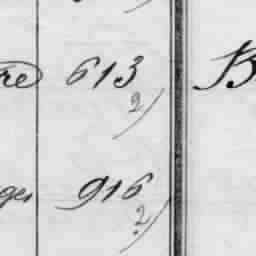 re 613 B
2)
ges 916
2)